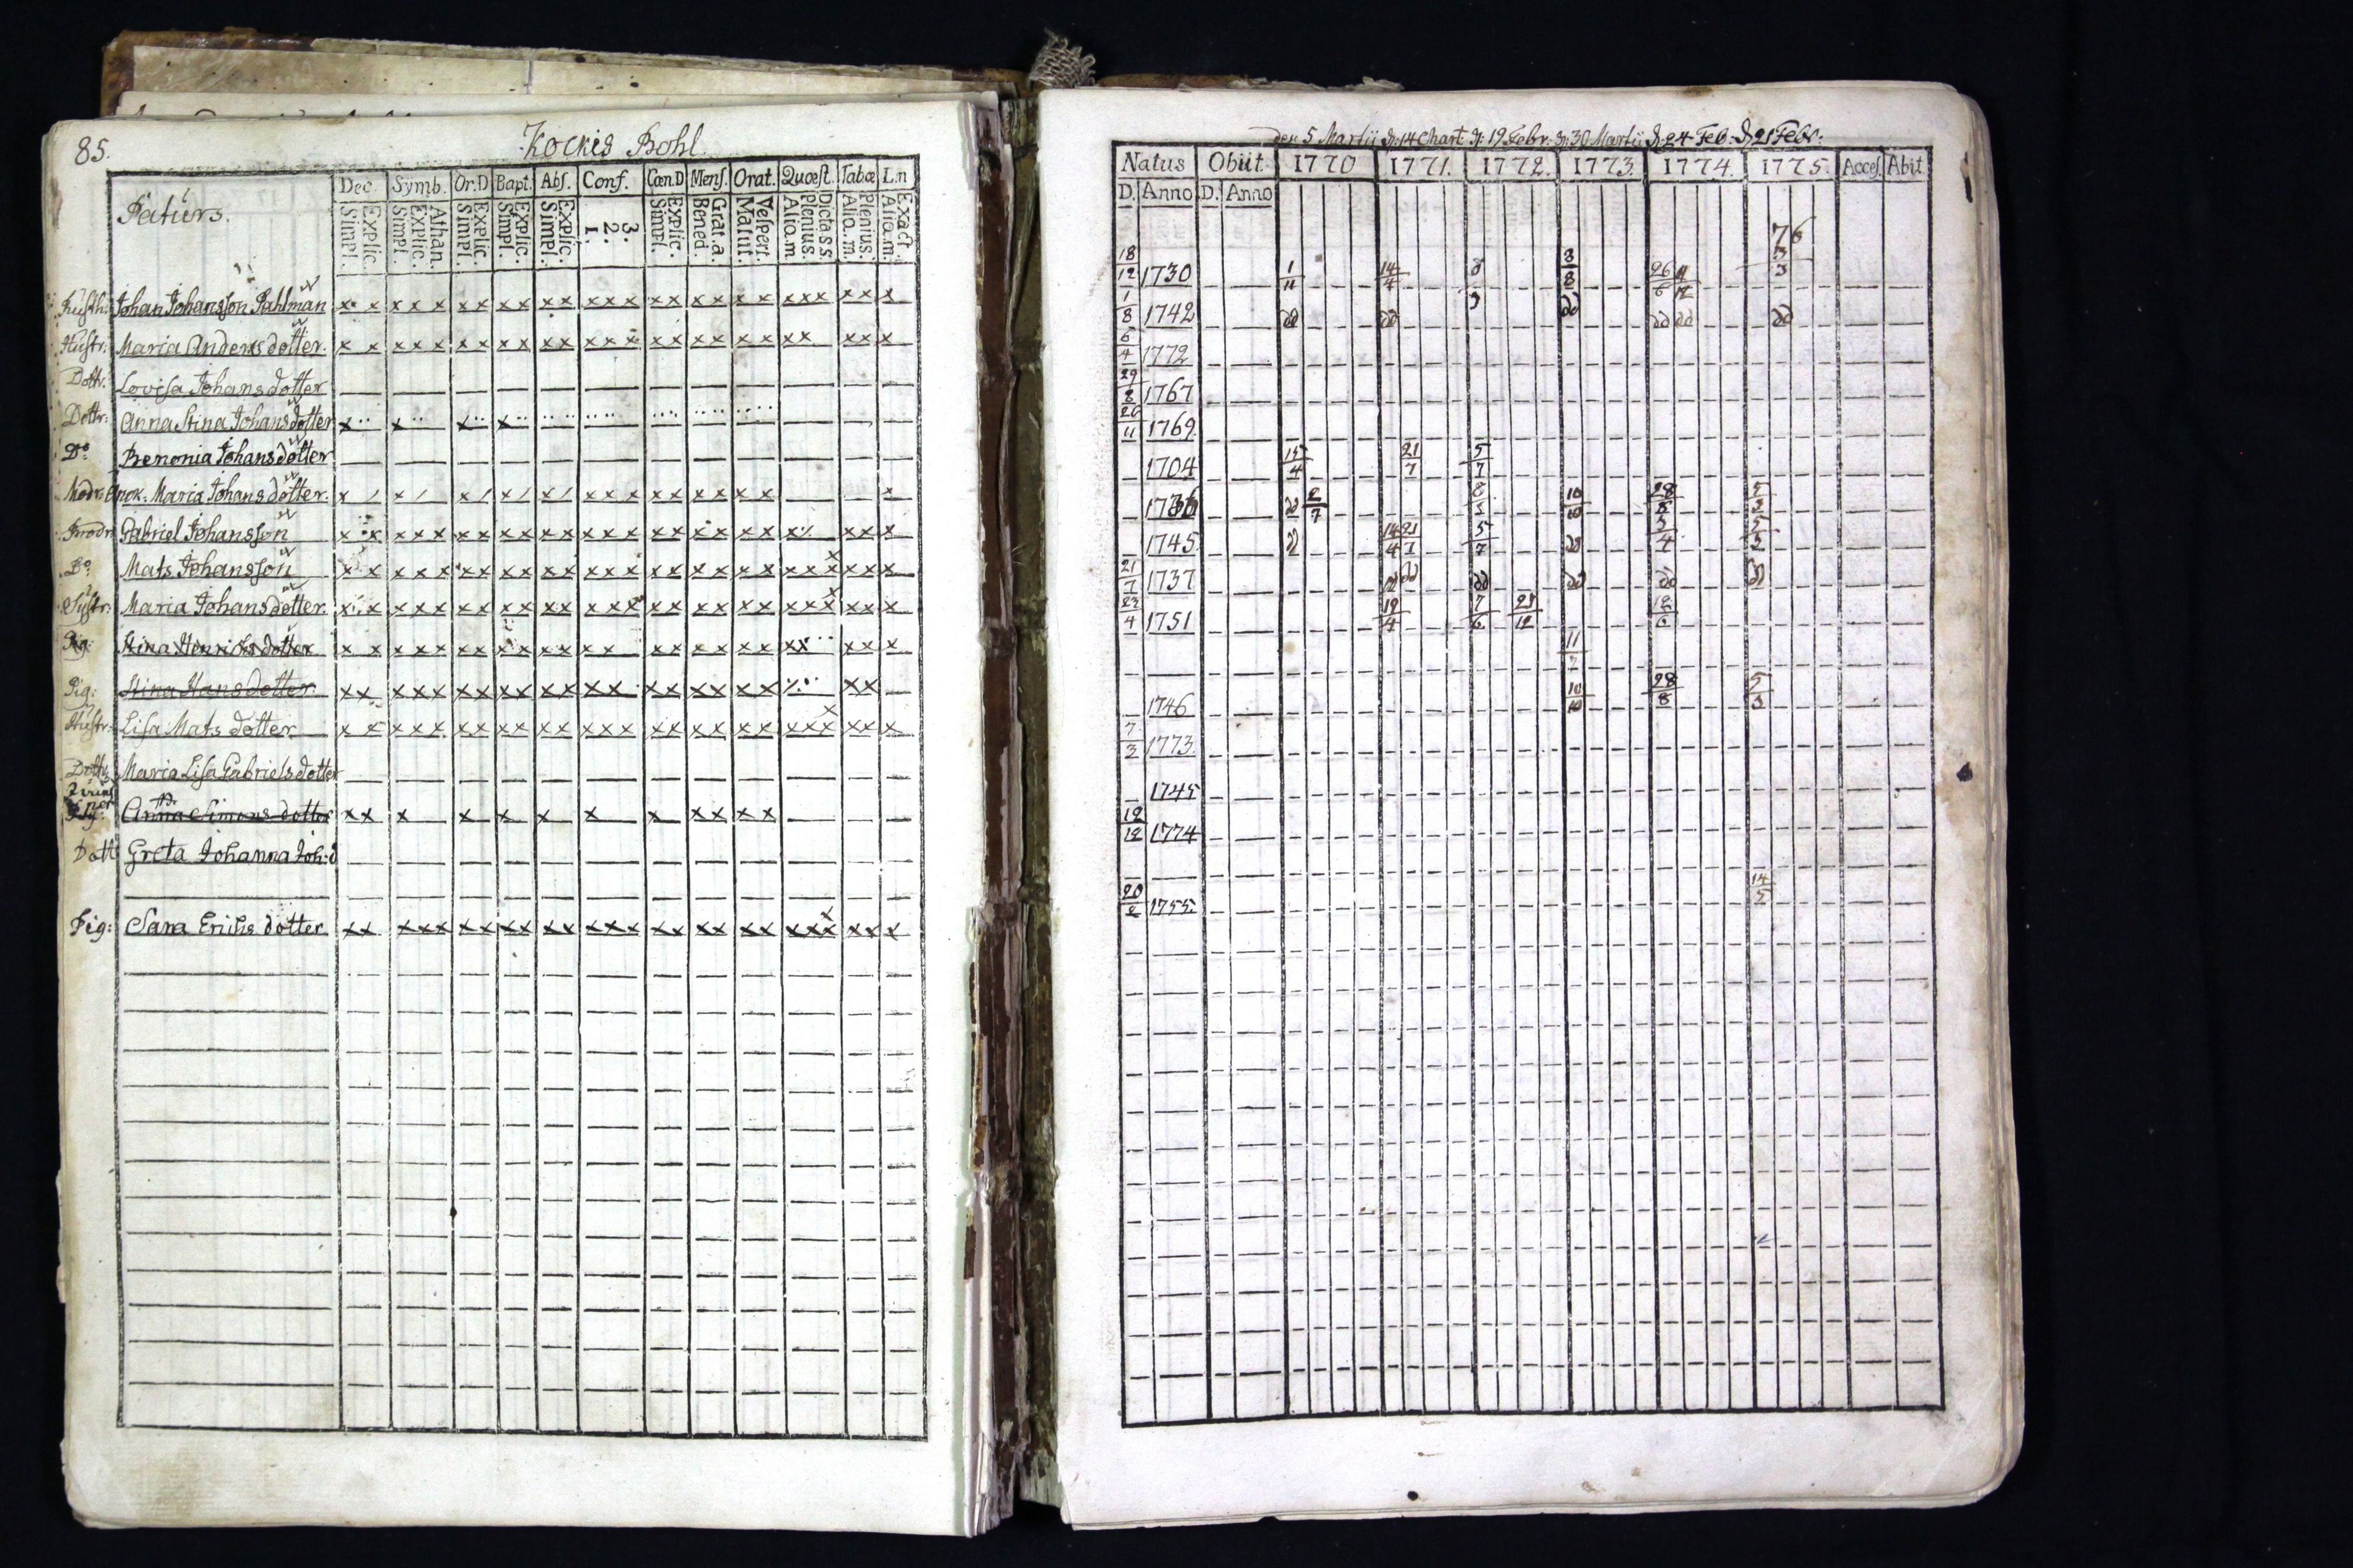 85.
Kockis Bohl
Dec. Symb. Or.D Bapt. Abs. Conf. Cœn.D Mens. Orat. Quœst. Tabœ L.n
Patürs.
Simpl. Explic. Simpl. Explic. Athan. Simpl. Explic. Simpl. Explic. Simpl. Explic. 1. 2: 3: Simpl. Explic. Bened. Grat.a Matut. Vespert. Aliq.m Plenius. Dicta S.S. Aliq.m. Plenius. Aliq.m. Exact.
Rusth: Johan Johansson Pahlman x x x x x x x x x x x x x x x x x x x x x x x x x x
Hustr: Maria Anders dotter. x x x x x x x x x x x x x x x x x x x x x x x x x
Dottr: Lovisa Johans dotter
Dottr: Anna Stina Johans dotter x x x x
Do Benonia Johans dotter
Modr: Enck. Maria Johans dotter. x / x / x / x / x / x x x x x x x x x x
Brodr Gabriel Johansson
Do Mats Johansson
Systr: Maria Johans dotter.
Pig: Stina Henrichs dotter
Pig: Stina Hans dotter
Hustr: Lisa Mats dotter
Dottr Maria Lisa Gabriels dotter
Pig: Anna Simons dotter x x x x x x x x x x x x
Dott Greta Johanna Joh:d
Pig: Sara Erichs dotter
den 5 Martii d: 14 Chart d: 19 Febr: d: 30 Martii d: 24 Feb. d 21 Febr:
Natus Obiit. 1770 1771. 1772. 1773. 1774. 1775. Acces. Abit.
D. Anno D. Anno
76
18/12 1730 1/11 14/4 3/8 26/6 11/12 3/3
1/8 1742 dd dd dd dd dd dd
6/4 1772
29/8 1767
26/11 1769.
1704 15/4 21/7 5/7
2/7 10/10 28/8 5/3
1745 d 14/4 21/7 5/7 dd 3/4 5/3
21/7 1737 dd dd dd dd dd
23/4 1751 19/4 7/6 29/12 12/6
11/7
1746 10/10 28/8 5/3
7/3 1773.
1745
12/12 1774
20/2 1755. 14/5